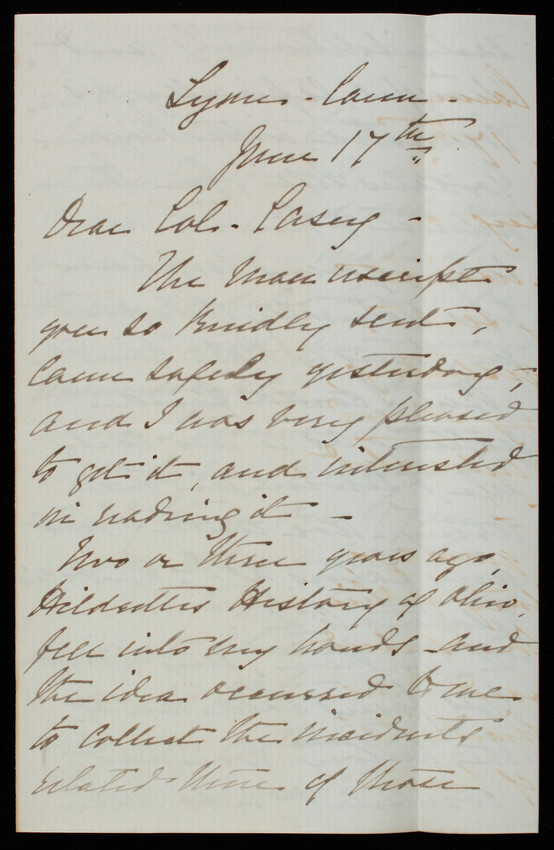 Lyme - Conn -
June 17th
Dear Col. Casey -
The Manuscript
you so kindly sent,
Came safely yesterday -,
and I was very pleased
to get it, and interested
in reading it -
Two or three years ago,
Hildreth's History of Ohio,
fell into my hands - and
the idea occurred to me
to Collect the incidents
related there of those